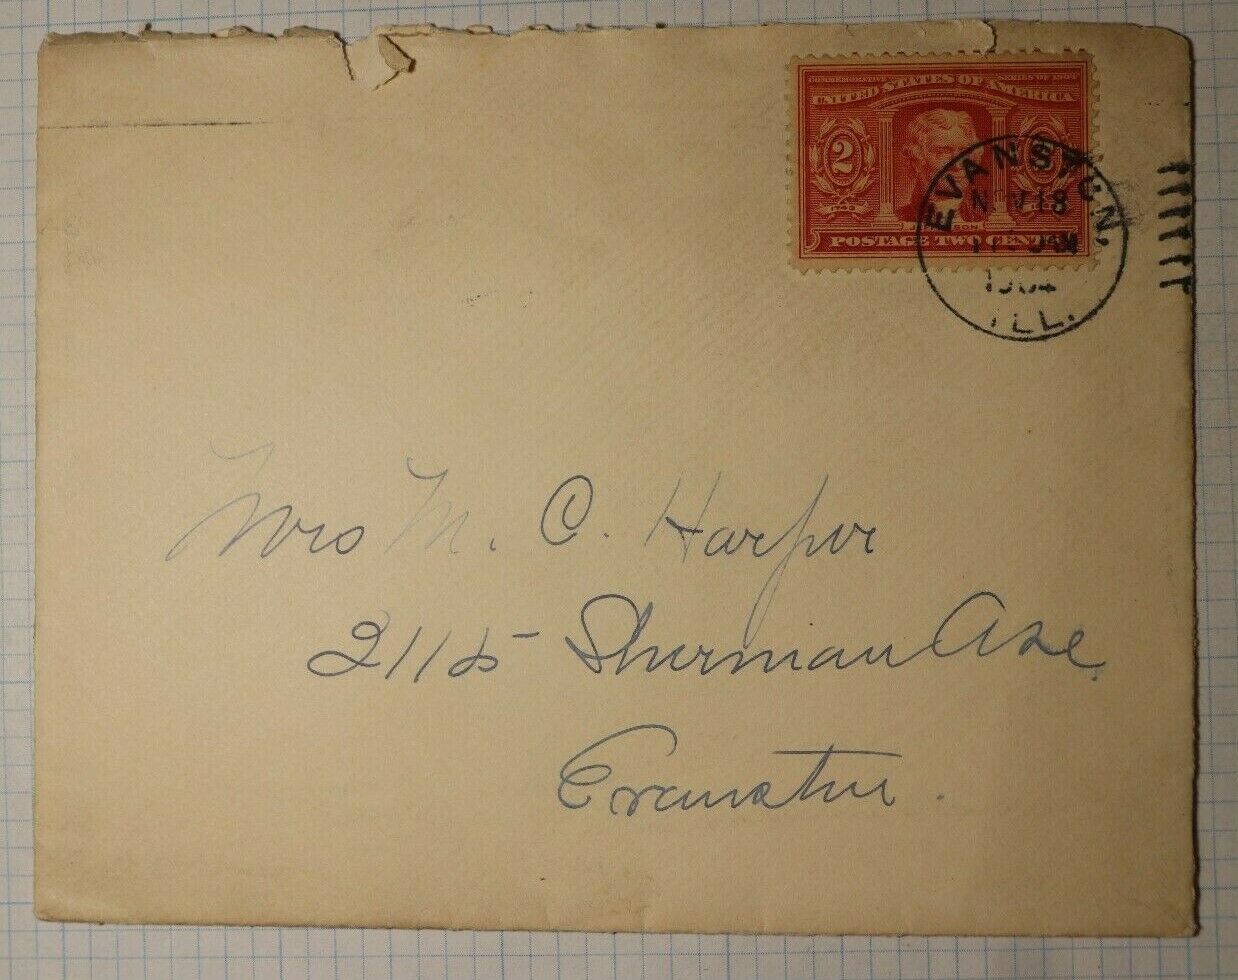 COMMEMORATIVE SERIES OF 1904
UNITED STATES OF AMERICA
2
POSTAGE TWO CENTS
EVANSTON,
NOV 18
AM
1904
ILL.
Mrs M. C. Harper
2115 Sherman Ave
Evanston.